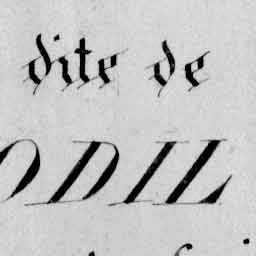 dite de
ODIL